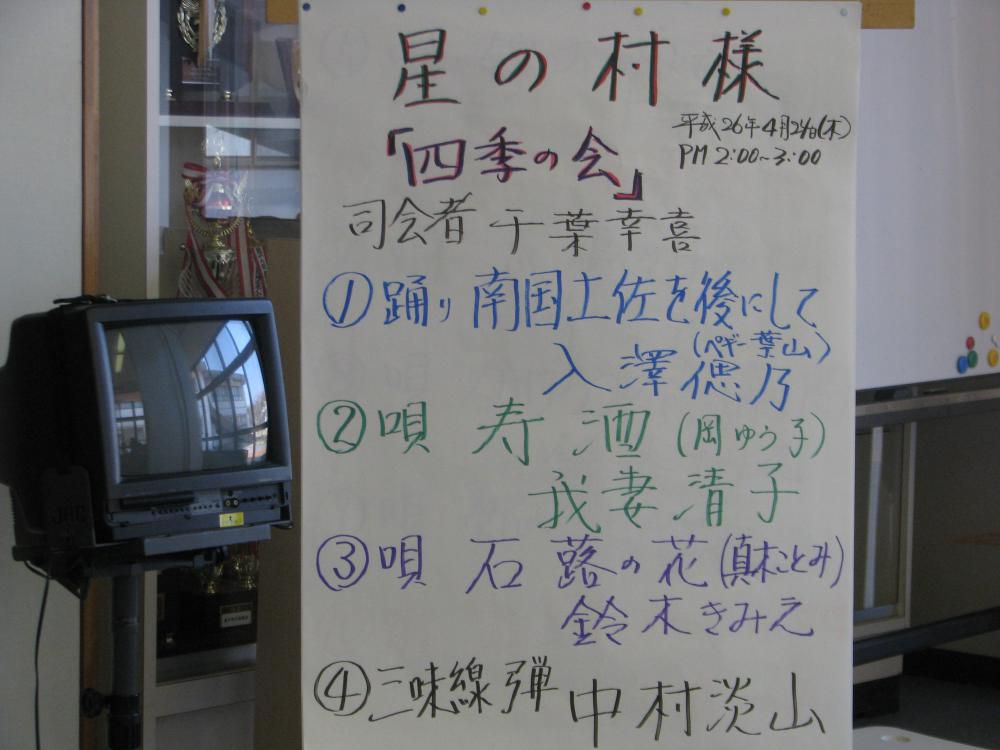 星の村様
平成26年4月24日(木)
PM 2:00~3:00
「四季の会」
司会者 千葉幸喜
①踊り 南国土佐を後にして
(ペギー葉山)
入澤偲乃
②唄 寿酒(岡ゆう子)
我妻清子
③唄 石蕗の花(真木ことみ)
鈴木きみえ
④三味線弾 中村淡山